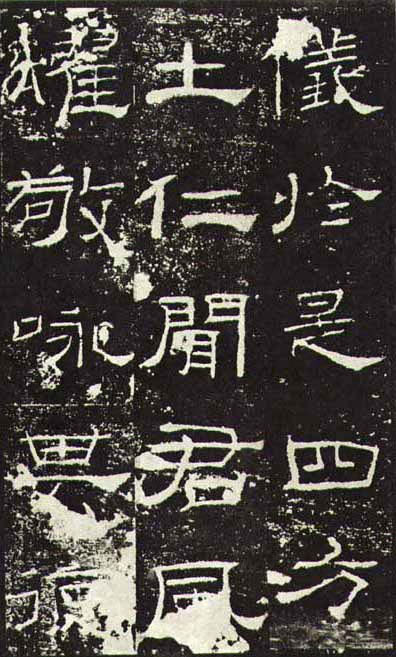 儀於是四方
士仁聞君風
燿敬咏其德